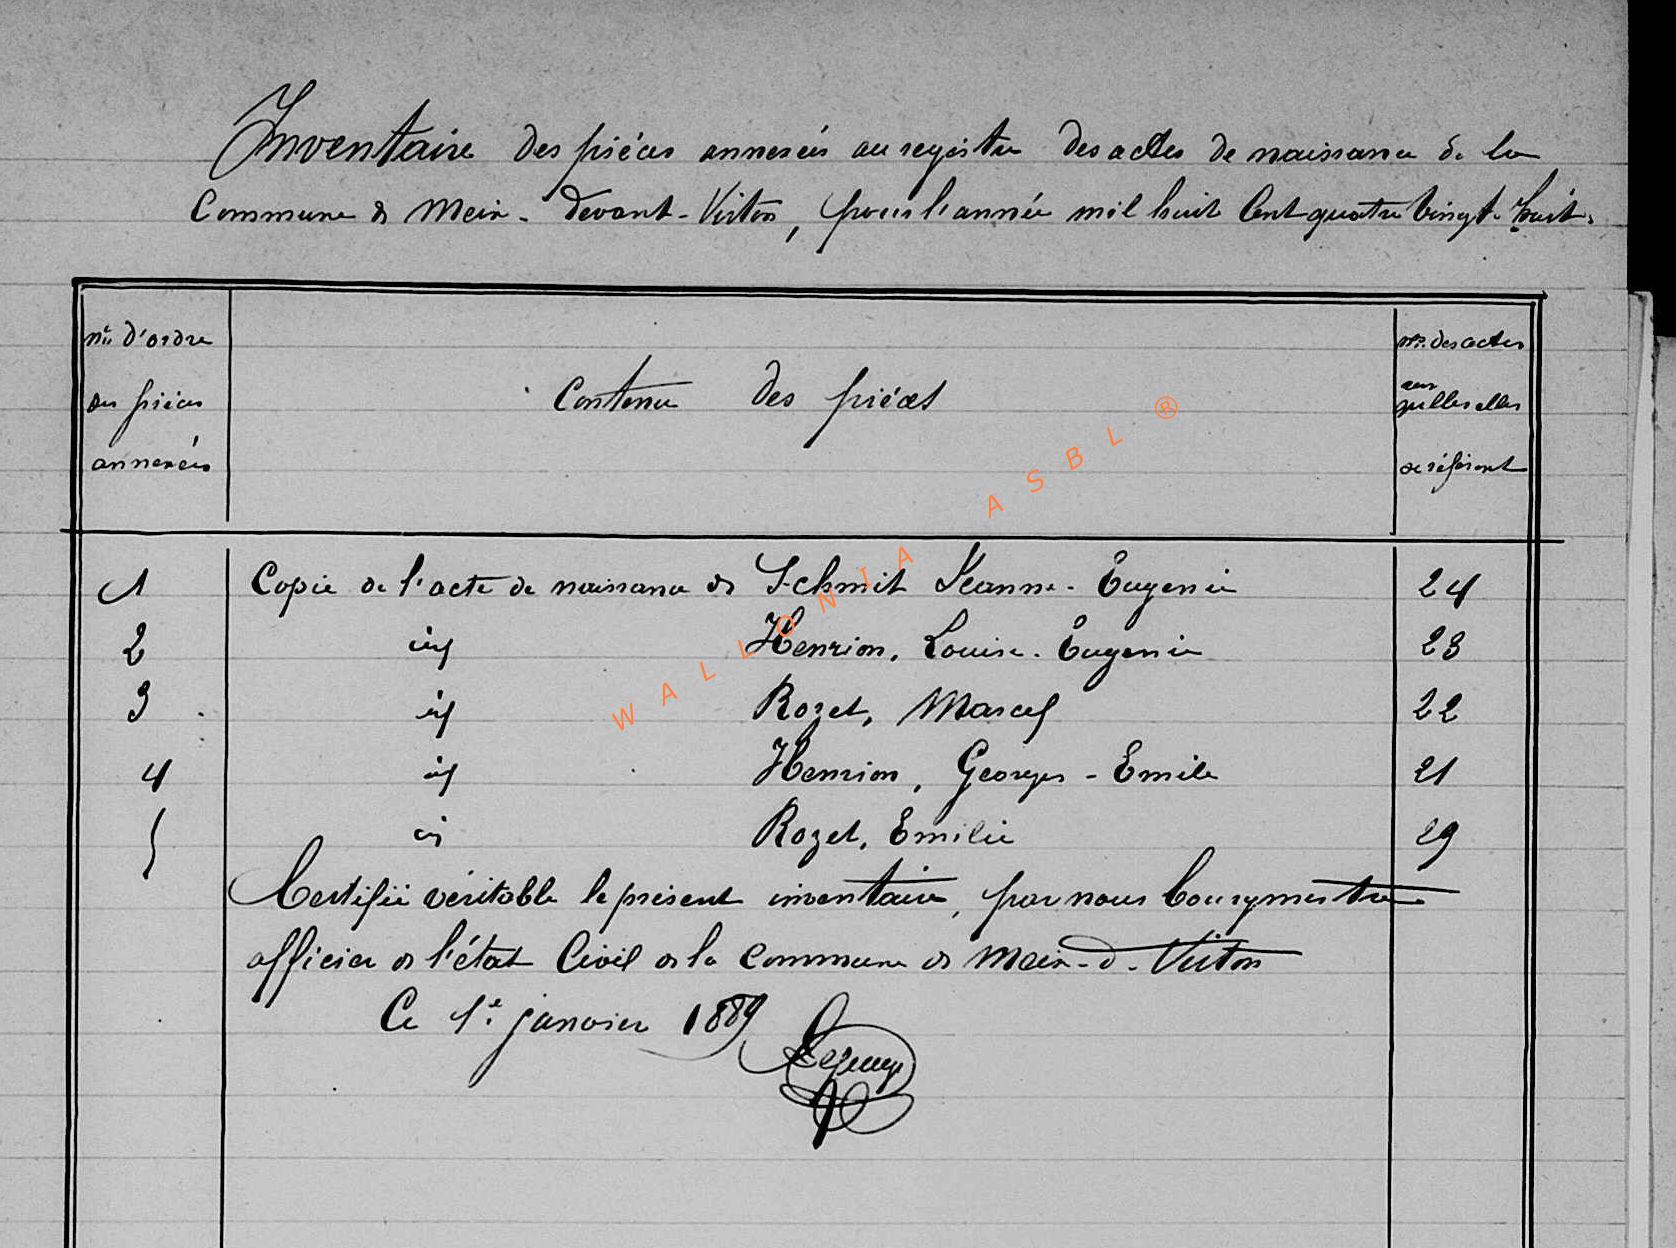 Inventaire des pièces annexées au registre des actes de naissance de la
Commune de Meix-devant-Virton, pour l'année mil huit Cent quatre vingt-huit.
nos d'ordre
des pièces
annexées
Contenu des pièces
nos des actes
aux
quelles elles
se réfèrent
1 Copie de l'acte de naissance de Schmit Jeanne-Eugenie 24
2 id Henrion, Louise-Eugenie 23
3 id Rozet, Marcel 22
4 id Henrion, Georges-Emile 21
5 id Rozet, Emilie 29
Certifié véritable le présent inventaire, par nous bourgmestre
officier de l'état Civil de la commune de Meix-d-Virton
Ce 1er janvier 1889
WALLONIA ASBL ®